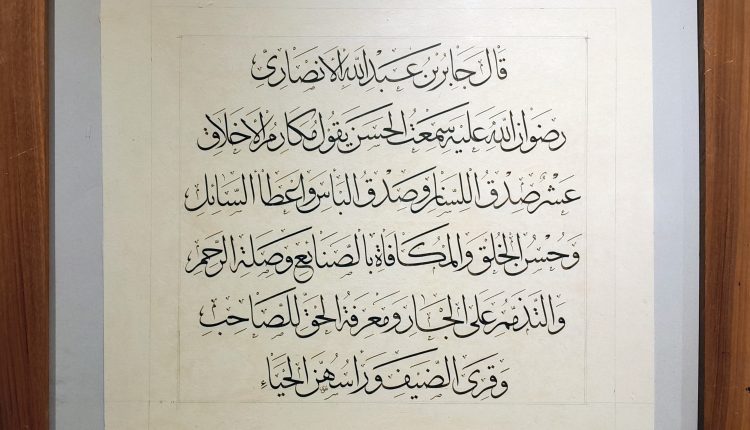 قَالَ جَابِرُ بْنُ عَبْدِ اللهِ الْاَنْصَارِیّ
رِضْوَانُ اللهِ عَلَيْهِ سَمِعْتُ الْحَسَنَ يَقُولُ مَكَارِمُ الْاَخْلَاقِ
عَشْرٌ صِدْقُ اللِّسَانِ وَصِدْقُ الْبَاْسِ وَاِعْطَاءُ السَّائِلِ
وَحُسْنُ الْخُلْقِ وَالْمُكَافَاةُ بِالصَّنَائِعِ وَصِلَةُ الرَّحِمِ
وَالتَّذَمُّمُ عَلَى الْجَارِ وَمَعْرِفَةُ الْحَقِّ لِلصَّاحِبِ
وَقِرَى الضَّيْفِ وَرَاْسُهُنَّ الْحَيَاءُ